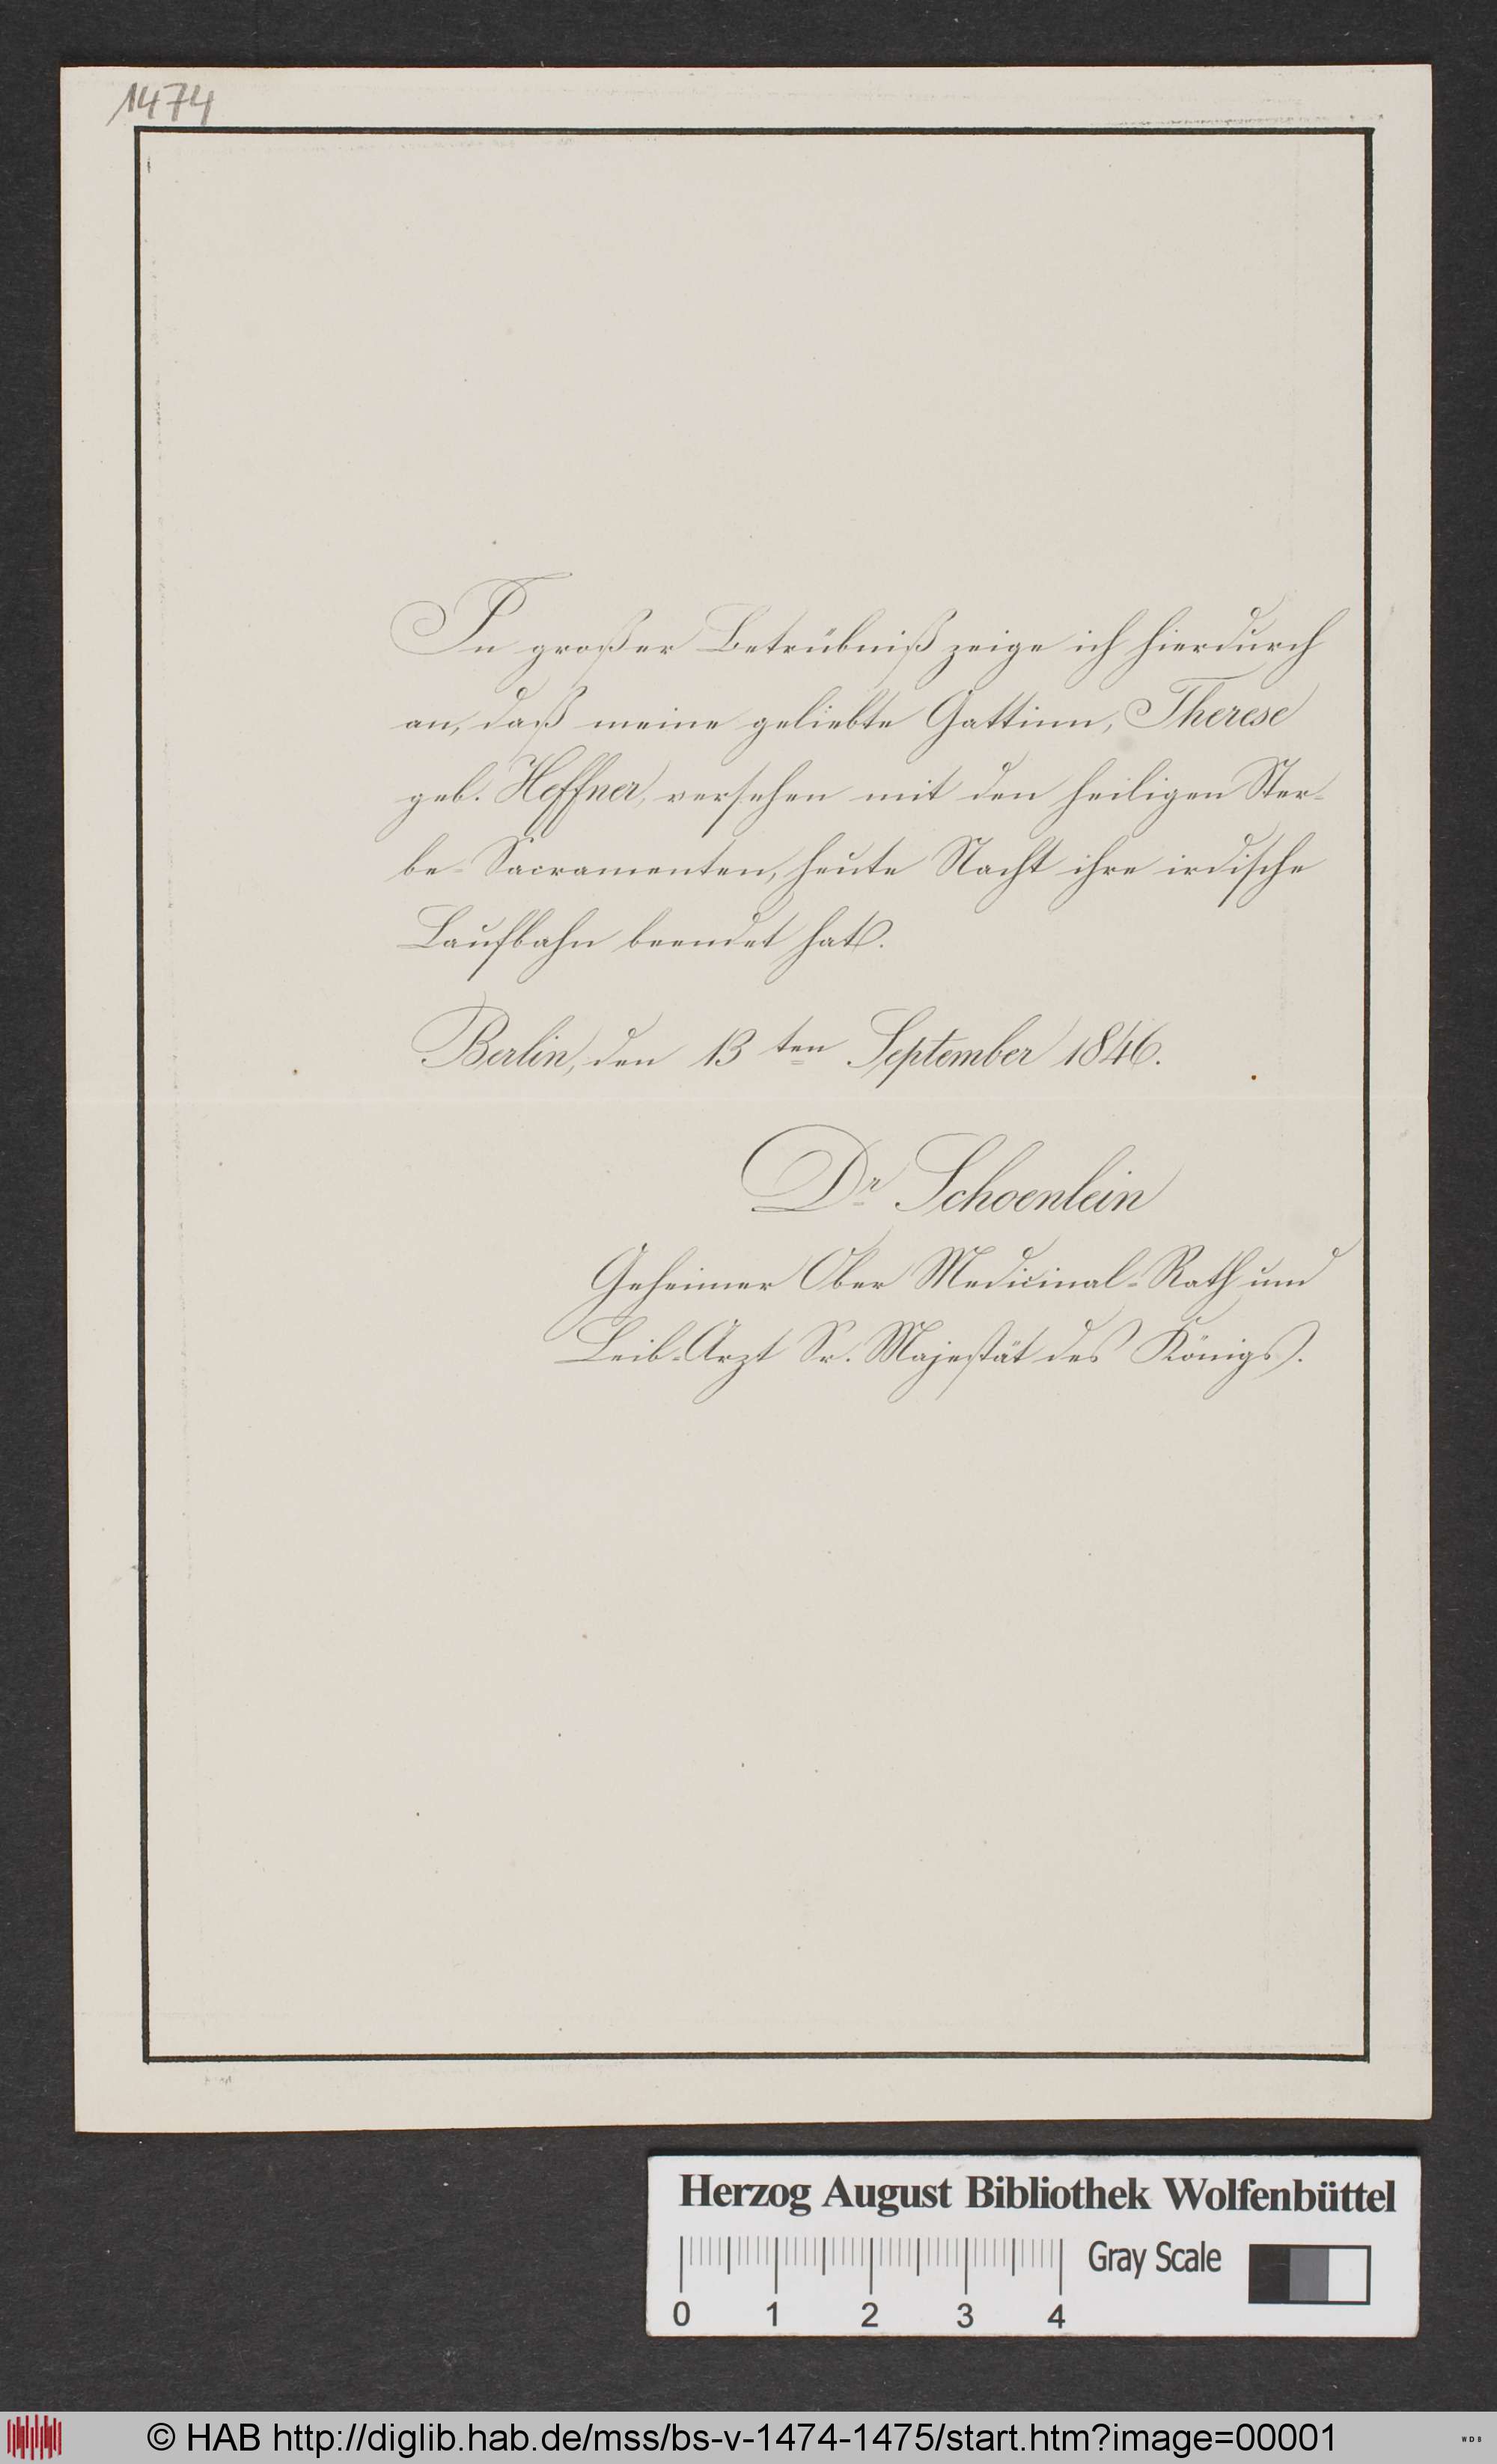 1474
In großer Betrübniß zeige ich hierdurch
an, daß meine geliebte Gattinn, Therese
geb. Heffner, versehen mit den heiligen Ster-
be-Sacramenten, heute Nacht ihre irdische
Laufbahn beendet hat.
Berlin, den 13ten September 1846.
Dr Schoenlein
Geheimer Ober Medicinal-Rath und
Leib-Arzt Sr. Majestät des Königs.
Herzog August Bibliothek Wolfenbüttel
Gray Scale
0 1 2 3 4
© HAB http://diglib.hab.de/mss/bs-v-1474-1475/start.htm?image=00001
WDB